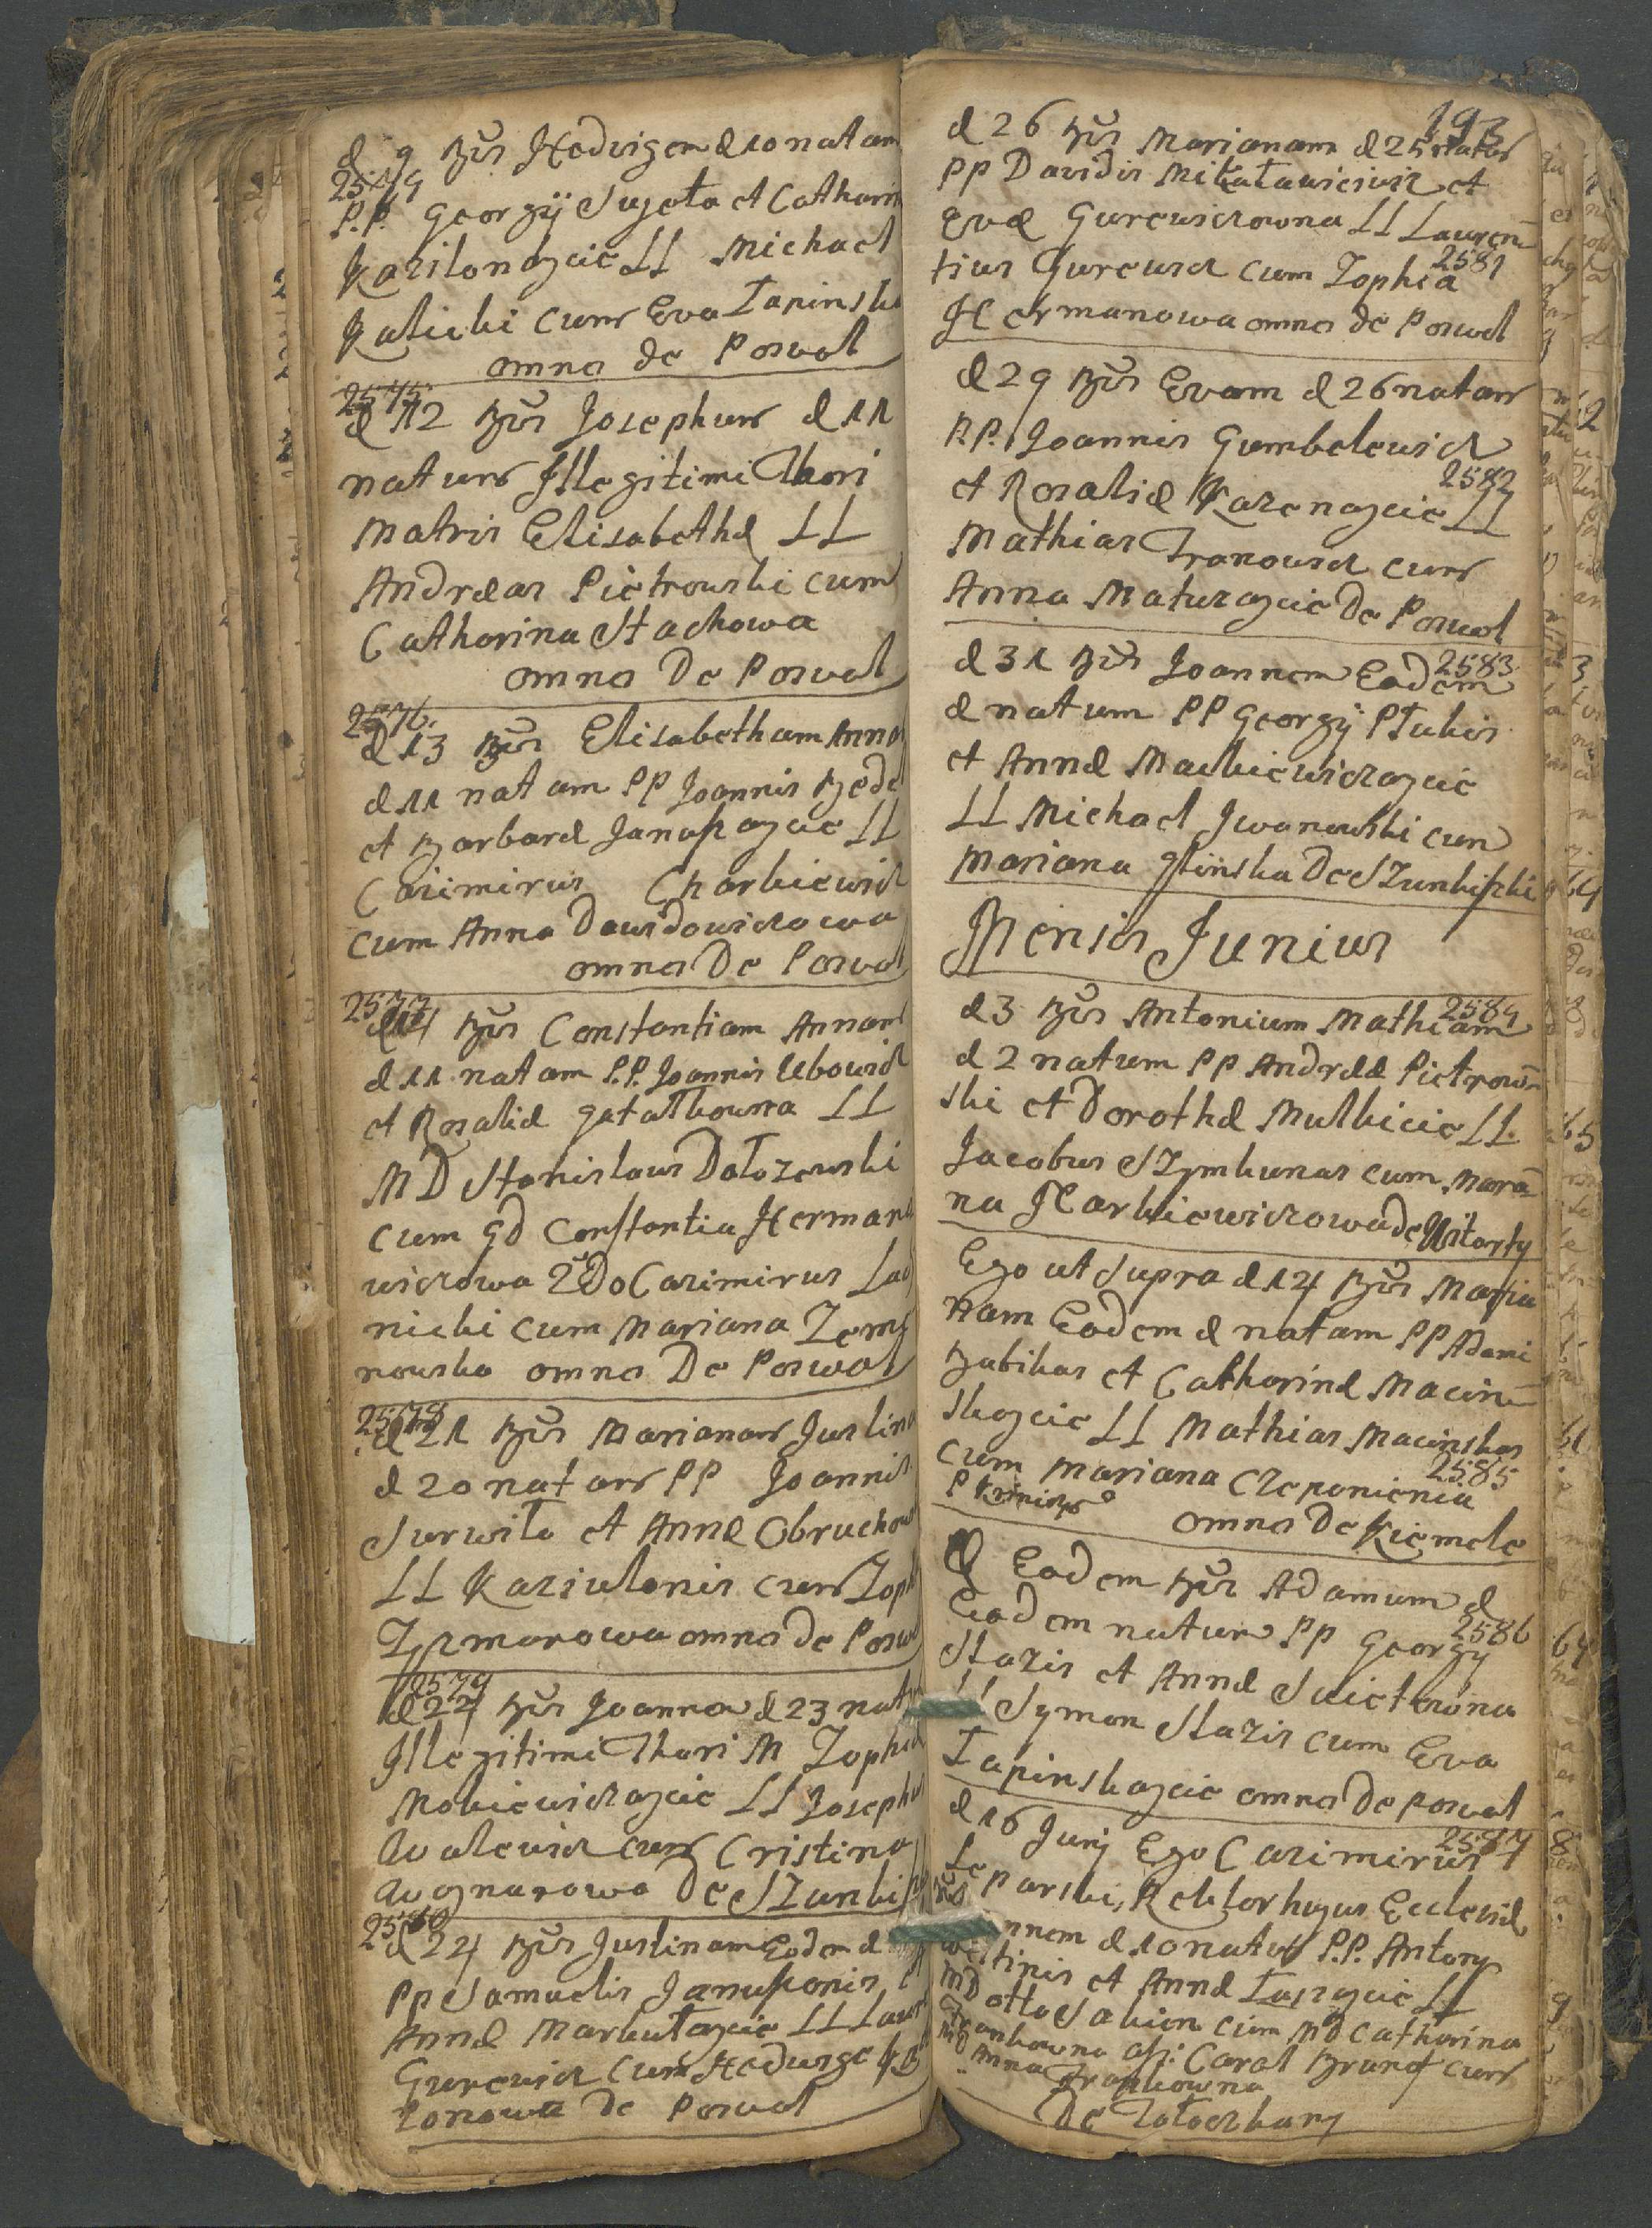 d 9 Bzũs Hedvigem d 10 natam
2574
P.P. Georgÿ Sugeta et Catharin
Kazilonazcie LL Michael
Kalicki cum Eva Łapinska
omnes de Poswol
2575
d 12 Bzũs Josephum d 11
natum Illegitimi Thori
Matris Elisabethæ LL
Andreas Pietrowski cum
Catharina Stachowa
omnes De Poswol
2576
d 13 Bzũs Elisabetham Anna
d 11 natam PP Joannis
et Barbaræ LL
Casimirus Charkiewicz
cum Anna Dawidowiczowa
omnes De Poswol
2577
d 14 Bzũs Constantiam Annam
d 11 natam P.P. Joannis Ubowicz
et Rosaliæ LL
MD Stanislaus Dołozewski
cum GD Constantia Herman
wiczowa 2do Casimirus
nicki cum Mariana
nowska omnes De Poswol
2578
d 21 Bzũs Marianam Justina
d 20 natam PP Joannis
Surwiło et Annæ Obruchow
LL Kaziulonis cum Zoph
omnes de Poswol
2579
d 24 Bzũs Joannem d 23 natum
Illegitimi Thori M Zophiæ
Mokiewiczazcie LL Josephus
Awalewicz cum Cristina
De SZunkisz
2580
d 24 Bzũs Justinam Eodem d
PP Samuelis Januszonis et
Annæ Markutazcie LL Laur
Gurewicz cum Hedvige
zonowa De Poswol
193
d 26 Bzũs Marianam d 25 natam
PP Davidis Mikałauiciwicz et
Evæ Gurewiczowna LL Lauren
2581
tius Gurewicz cum Zophia
Hermanowa omnes de Poswol
d 29 Bzũs Evam d 26 natam
P.P. Joannis Gumbelewicz
2582
et Rosaliæ Kazenazcie LL
Mathias Tranowicz cum
Anna Matuzazcie De Poswol
2583
d 31 Bzũs Joannem Eodem
d natum PP Georgÿ Płukis
et Annæ Mackiewiczazcie
LL Michael Iwanowski cum
Mariana Glinska De SZunkiszki
Mensis Junius
2584
d 3 Bzũs Antonium Mathiam
d 2 natum PP Andreæ Pietrow
ski et Dorothæ Mulkicie LL
Jacobus SZymkunas cum Maria
na Harkiewiczowa de
Ego ut Supra d 14 Bzũs Maria
nam Eodem d natam PP Adami
Bubikas et Catharinæ Macin
skazcie LL Mathias Macinskas
2585
cum Mariana Czeponienia
omnes De Kiemele
d Eodem Bzũs Adamum d
2586
Eodem natum PP Georgÿ
Stazis et Annæ
LL Symon Stazis cum Eva
Łapinskazcie omnes de Poswol
2587
d 16 Junÿ Ego Casimirus
Leparski, Rektor hujus Ecclesiæ
d 10 natus P.P. Antony
et Annæ LL
MD Otto Saken cum MD Catharina
Frankowna Ass: Carol Brunof cum
MD Anna Frankowna
De